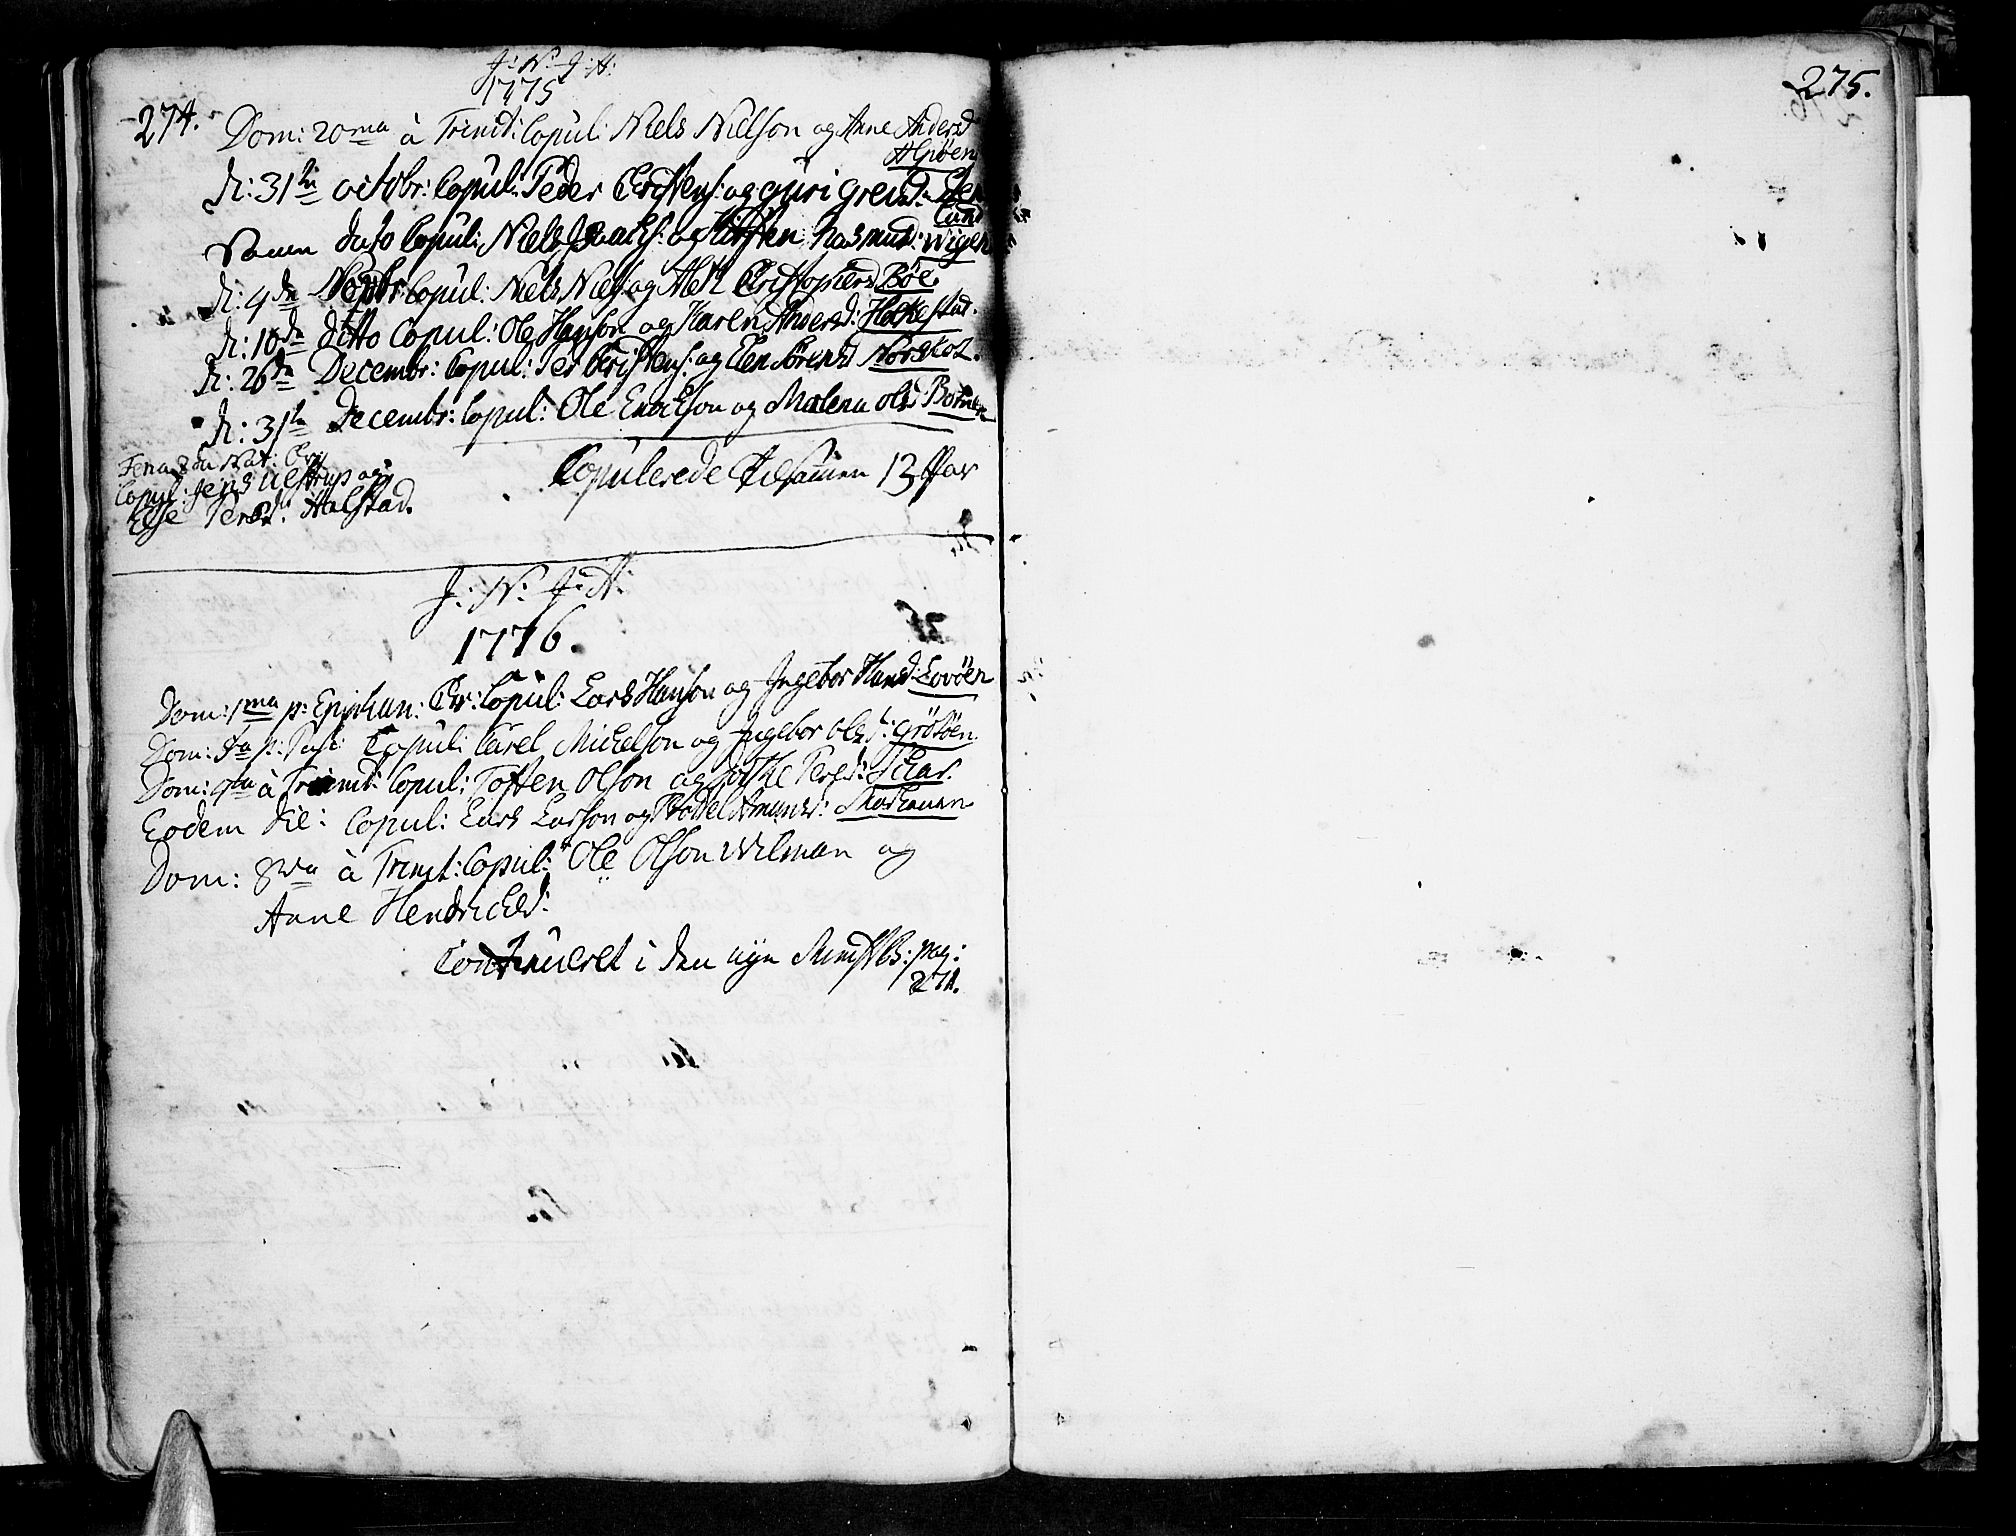 J: N: J: A:
1775
274.
Dom: 20ma à Trinit: Copul: Niels Nielson og Anne Andersd
Alpöen
d: 31te octobr: Copul: Peder Cristens: og guri greisd:
Lund
Samen dato Copul: Niels Isaachs: og Kirsten Rasmusd: Wigen
d: 9de Novbr: Copul: Niels Niels: og Aleth Cristophersd Böe.
d: 10de ditto Copul: Ole Hanson og Karen Andersd: Holkestad.
d: 26de Decembr: Copul: Per Cristens: og Elen Sörensd Norskot.
d: 31te Decembr: Copul: Ole Enockson og Malena olsd Botnen
Feria 2da Nat: Cri
Copul: Jens Ulstrup og
Else Persd: Halstad.
Copulerede tilsamen 13 Par
J: N: J: A:
1776.
Dom: 1ma p: Epiphan: Cr: Copul: Lars Hanson og Ingebor Hansd: Lovöen
Dom: p: Pasc: Copul: Carel Mickelson og Ingebor olsd: Grötöen.
Dom: à Trinit: Copul: Tosten Olson og Persd: Schar.
Eodem die: Copul: Lars Larson og Bodel Amunsd:
Dom: 8va à Trinit: Copul: Ole Olson Wilman og
Anne Hendrichsd:
Continueret i den nye Minist B: pag:
271.
275.